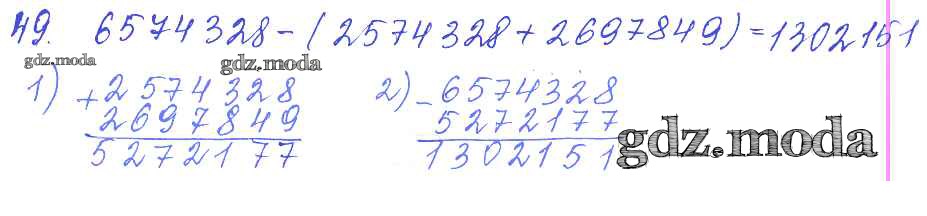 49. 6574328-(2574328+2697849)=1302151
gdz.moda gdz.moda
1) +2574328 2) -6574328
2697849 5272177
5272177 1302151
gdz.moda